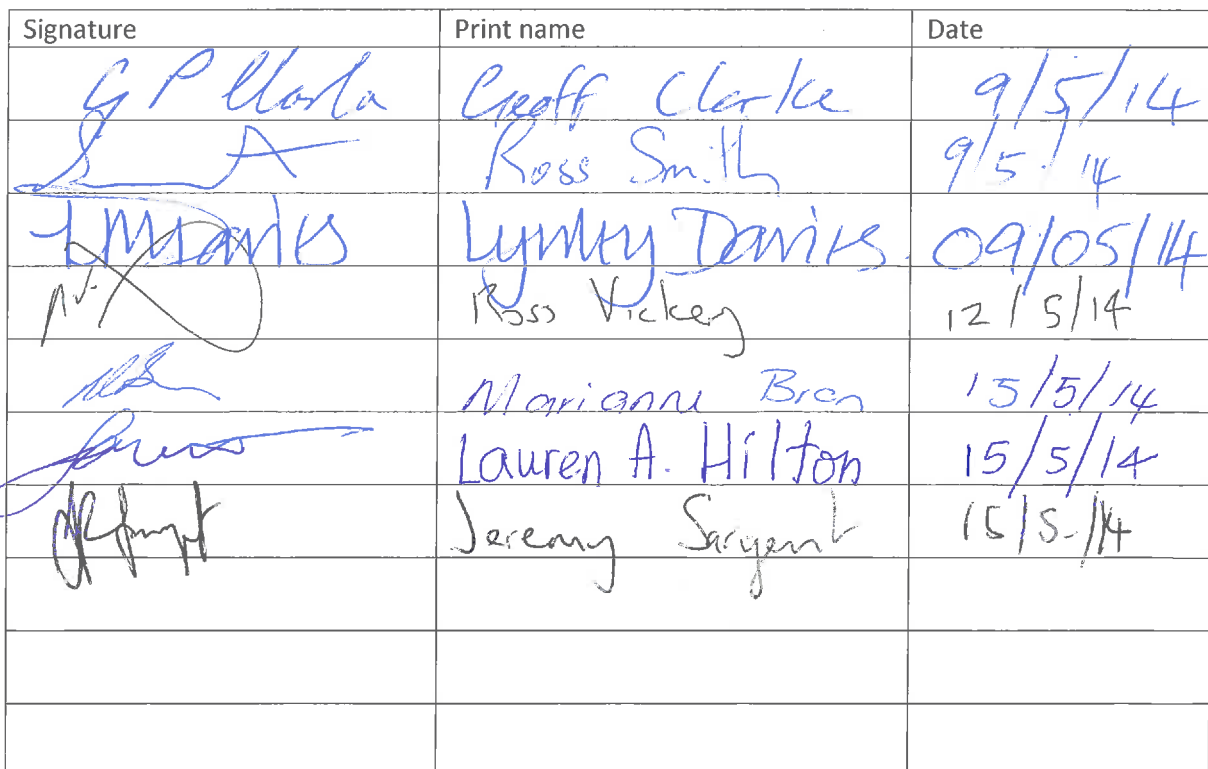 Signature Print name Date
G P Clarke Geoff Clarke 9/5/14
Ross Smith 9/5/14
Lynley Davies 09/05/14
Ross Vickery 12/5/14
Marianne 15/5/14
Lauren A. Hilton 15/5/14
Jeremy Sargent 15/5/14